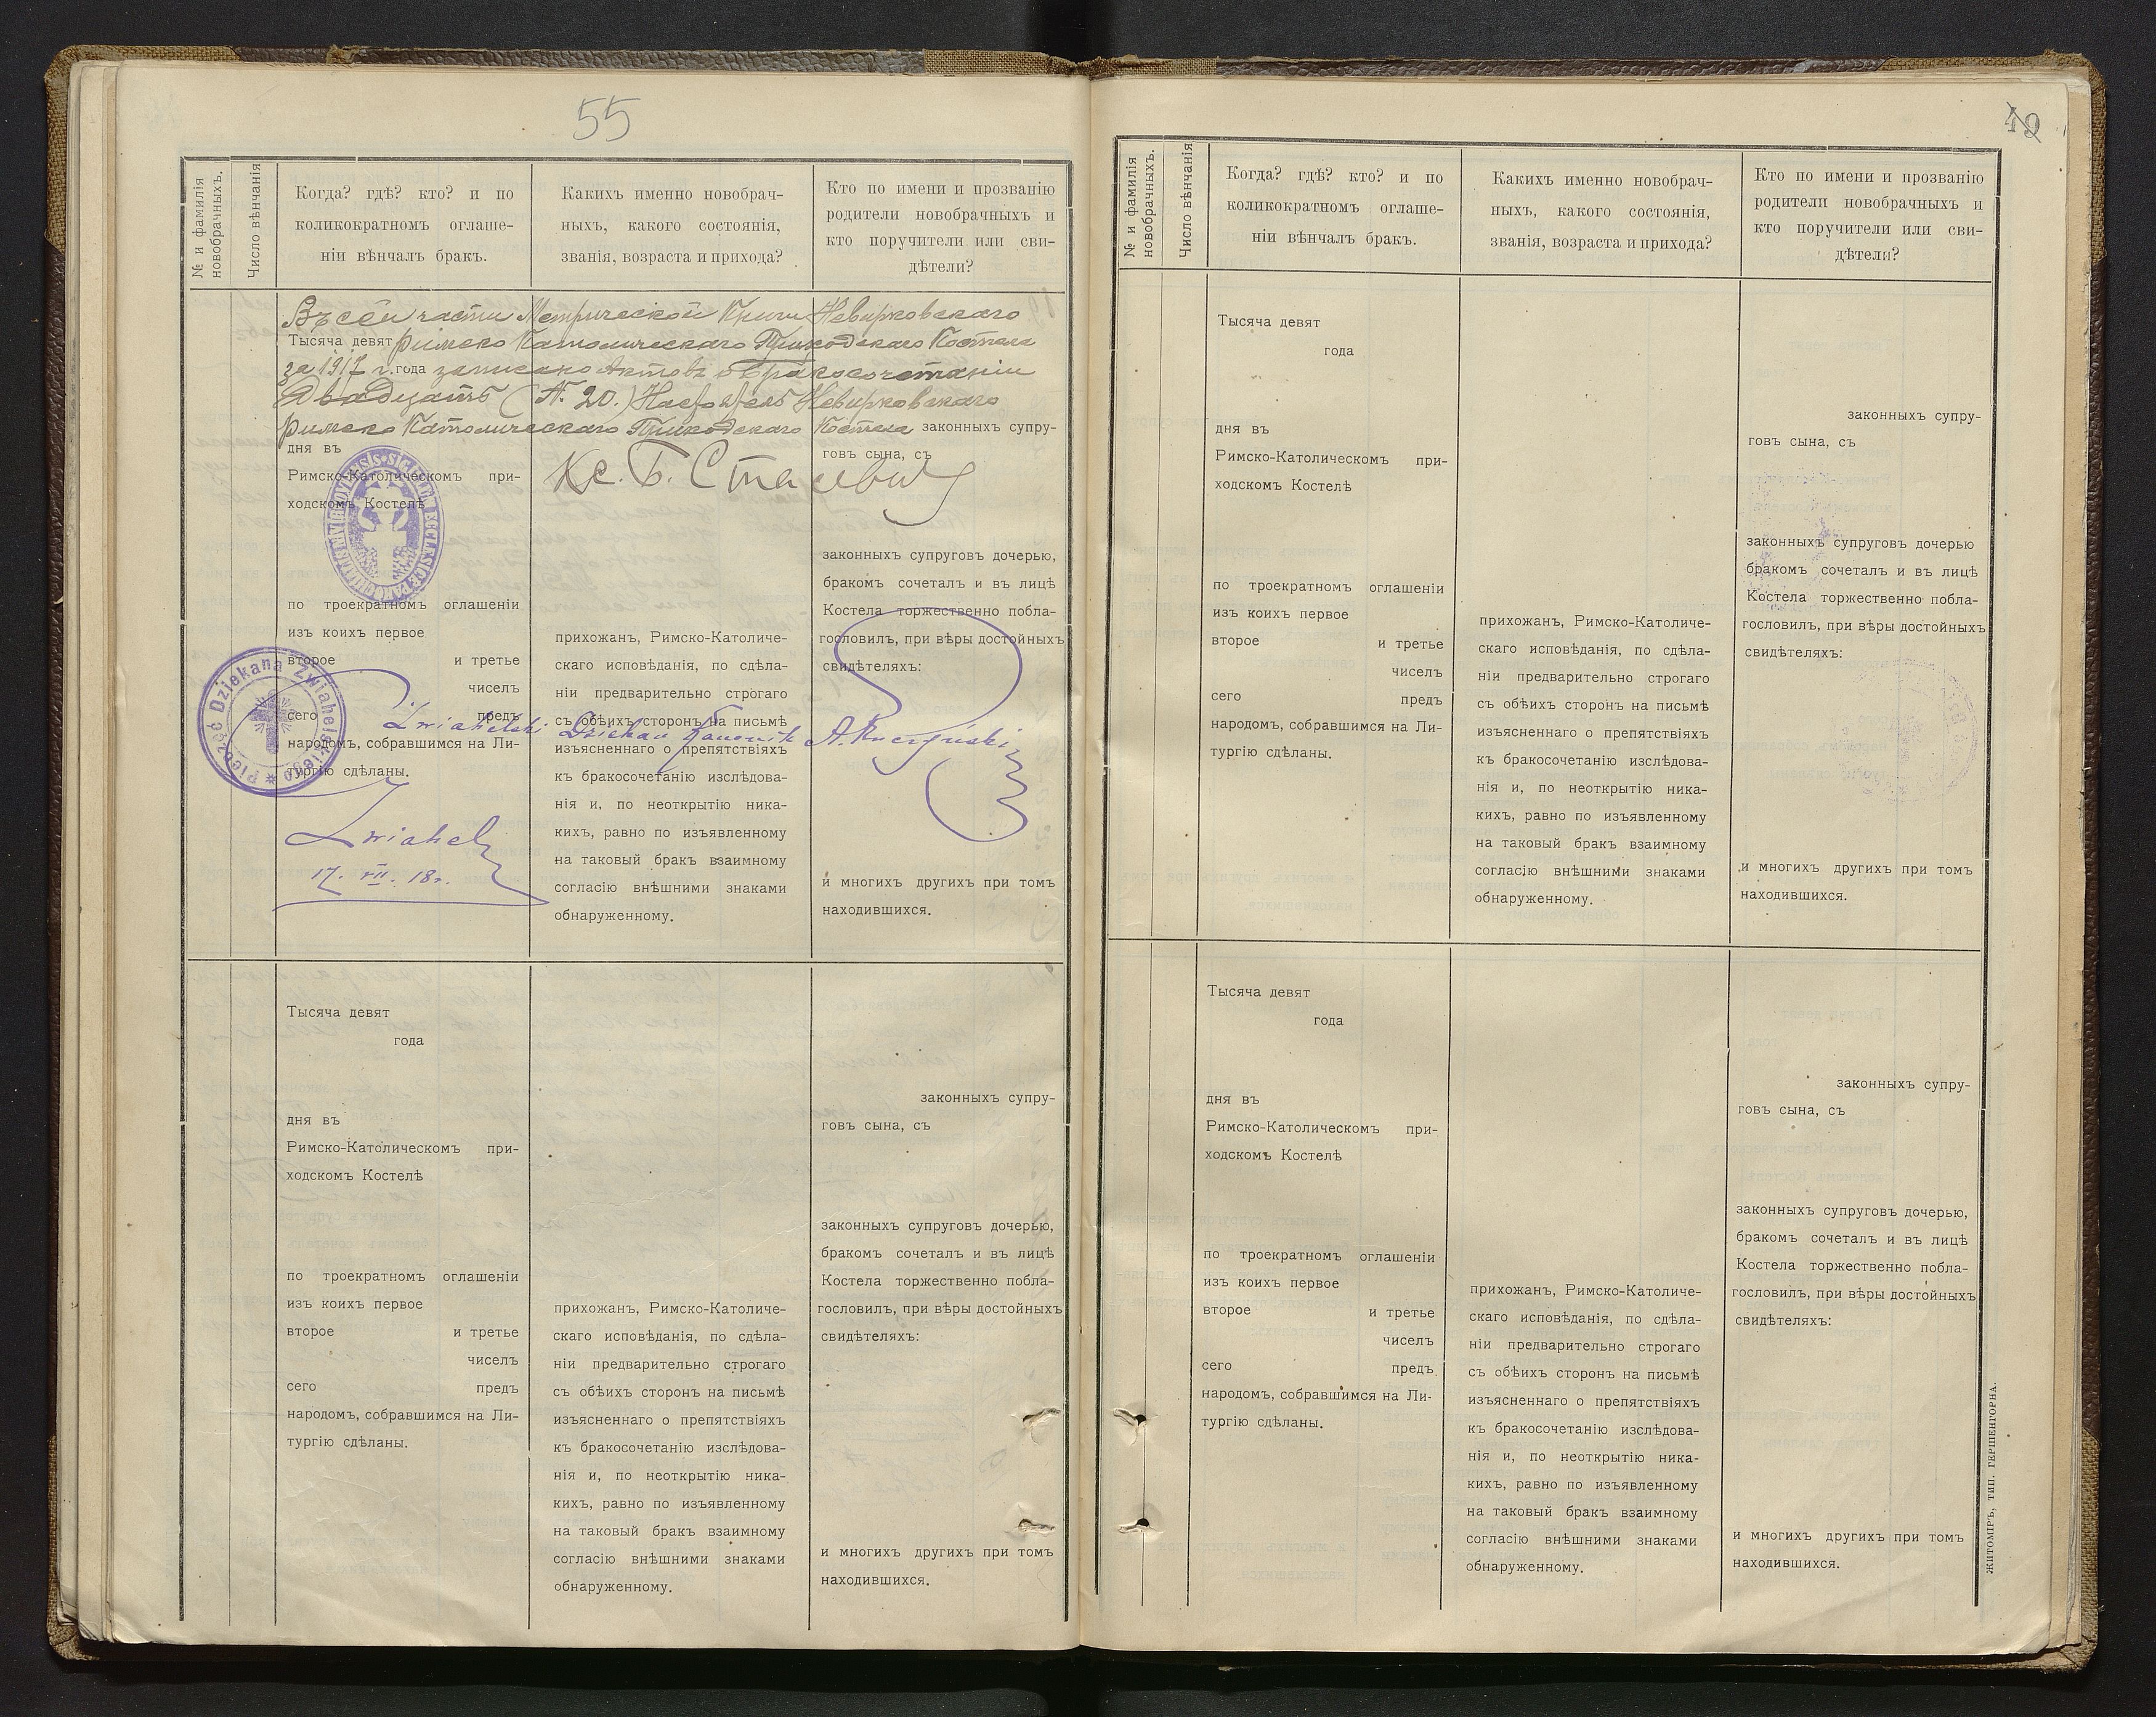 55
№ и фамилія новобрачныхъ.
Число вѣнчанія
Когда? гдѣ? кто? и по
коликократномъ оглаше-
ніи вѣнчалъ бракъ.
Какихъ именно новобрач-
ныхъ, какого состоянія,
званія, возраста и прихода?
Кто по имени и прозванію
родители новобрачныхъ и
кто поручители или сви-
дѣтели?
Въ сей части Метрической Книги Невирковскаго
Тысяча девят Римско Католическаго Приходскаго Костела
за 1917 г. года записано Актовъ о бракосочетаніи
Двадцать (№ 20.) Настоятель Невирковскаго
Римско Католическаго Приходскаго Костела законныхъ супру-
дня въ
говъ сына, съ
Кс. Б. Стасевич
Римско-Католическомъ при-
ходскомъ Костелѣ
по троекратномъ оглашеніи
изъ коихъ первое
второе и третье
чиселъ
сего предъ
народомъ, собравшимся на Ли-
тургію сдѣланы.
Pieczęć Dziekana Zwiahelskiego
Zwiahelski Dziekan Kanonik
Zwiahel
17. VII. 18 r.
прихожанъ, Римско-Католиче-
скаго исповѣданія, по сдѣла-
ніи предварительно строгаго
съ обѣихъ сторонъ на письмѣ
изъясненнаго о препятствіяхъ
къ бракосочетанію изслѣдова-
нія и, по неоткрытію ника-
кихъ, равно по изъявленному
на таковый бракъ взаимному
согласію внѣшними знаками
обнаруженному.
законныхъ супруговъ дочерью,
бракомъ сочеталъ и въ лицѣ
Костела торжественно побла-
гословилъ, при вѣры достойныхъ
свидѣтеляхъ:
и многихъ другихъ при томъ
находившихся.
Тысяча девят
года
дня въ
Римско-Католическомъ при-
ходскомъ Костелѣ
по троекратномъ оглашеніи
изъ коихъ первое
второе и третье
чиселъ
сего предъ
народомъ, собравшимся на Ли-
тургію сдѣланы.
прихожанъ, Римско-Католиче-
скаго исповѣданія, по сдѣла-
ніи предварительно строгаго
съ обѣихъ сторонъ на письмѣ
изъясненнаго о препятствіяхъ
къ бракосочетанію изслѣдова-
нія и, по неоткрытію ника-
кихъ, равно по изъявленному
на таковый бракъ взаимному
согласію внѣшними знаками
обнаруженному.
законныхъ супру-
говъ сына, съ
законныхъ супруговъ дочерью,
бракомъ сочеталъ и въ лицѣ
Костела торжественно побла-
гословилъ, при вѣры достойныхъ
свидѣтеляхъ:
и многихъ другихъ при томъ
находившихся.
49
№ и фамилія новобрачныхъ.
Число вѣнчанія
Когда? гдѣ? кто? и по
коликократномъ оглаше-
ніи вѣнчалъ бракъ.
Какихъ именно новобрач-
ныхъ, какого состоянія,
званія, возраста и прихода?
Кто по имени и прозванію
родители новобрачныхъ и
кто поручители или сви-
дѣтели?
Тысяча девят
года
дня въ
Римско-Католическомъ при-
ходскомъ Костелѣ
по троекратномъ оглашеніи
изъ коихъ первое
второе и третье
чиселъ
сего предъ
народомъ, собравшимся на Ли-
тургію сдѣланы.
прихожанъ, Римско-Католиче-
скаго исповѣданія, по сдѣла-
ніи предварительно строгаго
съ обѣихъ сторонъ на письмѣ
изъясненнаго о препятствіяхъ
къ бракосочетанію изслѣдова-
нія и, по неоткрытію ника-
кихъ, равно по изъявленному
на таковый бракъ взаимному
согласію внѣшними знаками
обнаруженному.
законныхъ супру-
говъ сына, съ
законныхъ супруговъ дочерью
бракомъ сочеталъ и въ лицѣ
Костела торжественно побла-
гословилъ, при вѣры достойныхъ
свидѣтеляхъ:
и многихъ другихъ при томъ
находившихся.
Тысяча девят
года
дня въ
Римско-Католическомъ при-
ходскомъ Костелѣ
по троекратномъ оглашеніи
изъ коихъ первое
второе и третье
чиселъ
сего предъ
народомъ, собравшимся на Ли-
тургію сдѣланы.
прихожанъ, Римско-Католиче-
скаго исповѣданія, по сдѣла-
ніи предварительно строгаго
съ обѣихъ сторонъ на письмѣ
изъясненнаго о препятствіяхъ
къ бракосочетанію изслѣдова-
нія и, по неоткрытію ника-
кихъ, равно по изъявленному
на таковый бракъ взаимному
согласію внѣшними знаками
обнаруженному.
законныхъ супру-
говъ сына, съ
законныхъ супруговъ дочерью,
бракомъ сочеталъ и въ лицѣ
Костела торжественно побла-
гословилъ, при вѣры достойныхъ
свидѣтеляхъ:
и многихъ другихъ при томъ
находившихся.
ЖИТОМІРЪ, ТИП. ГЕРШЕНГОРНА.